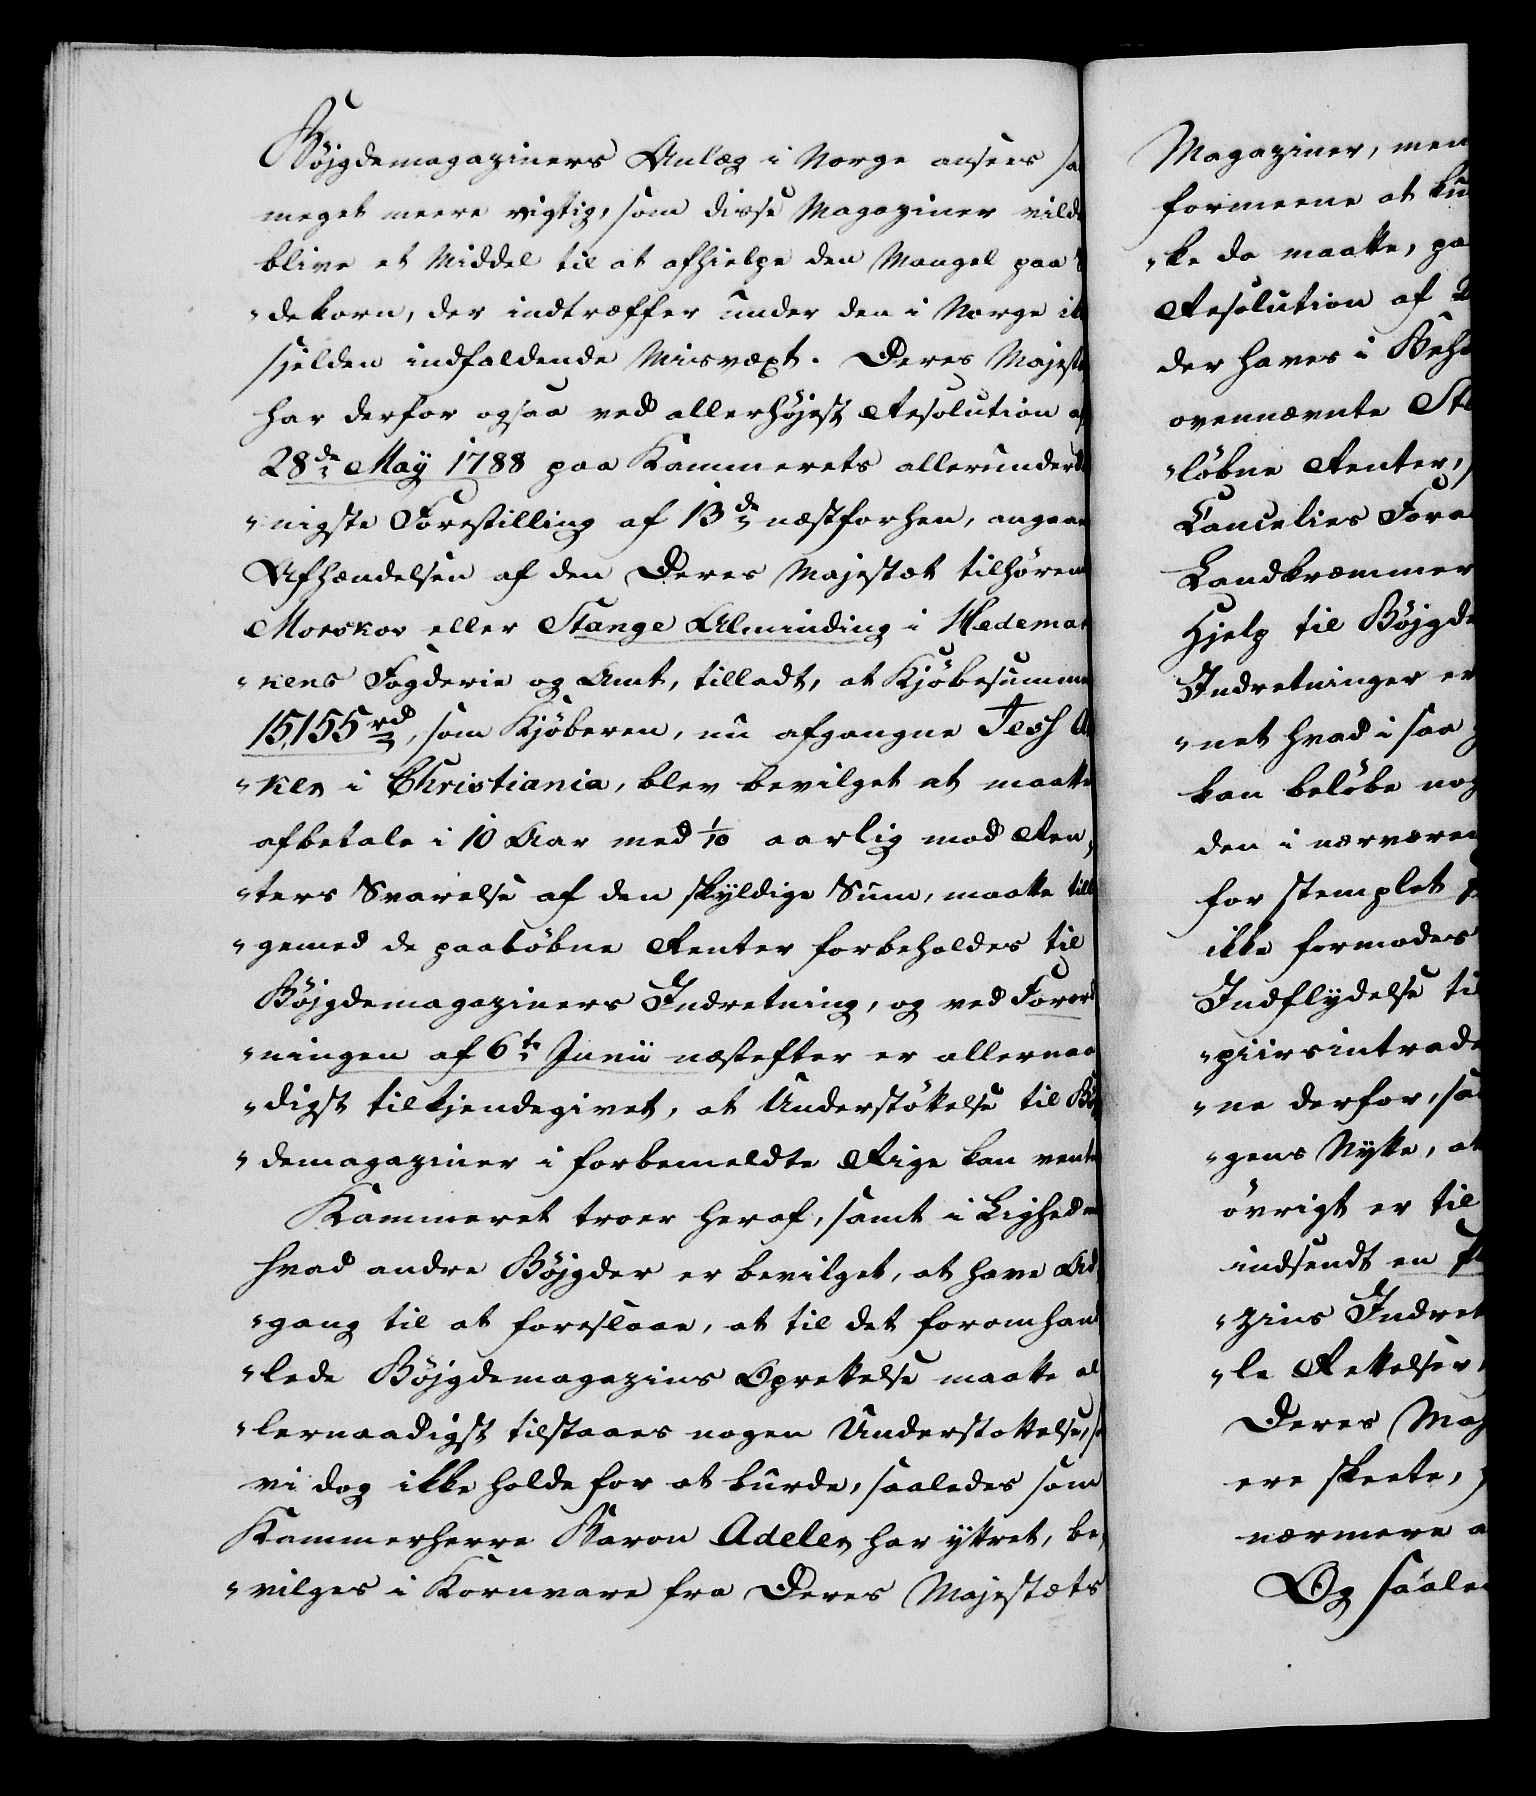 Bøjgdemagaziners Anlæg i Norge ansees saa
meget meere vigtig, som disse Magaziner vilde
blive et Middel til at afhielpe den Mangel paa
"dekorn, der indtræffer under den i Norge ik
sjelden indfaldende Misvæxt. Deres Majestæt
har derfor ogsaa ved allerhøjest Resolution af
28de Maÿ 1788 paa Kammerets allerunderda
"nigste Forestilling af 13de næstforhen, angaae
Afhændelsen af den Deres Majestæt tilhørend
Morskov eller Stange Alminding i Hedemar
"kens Fogderie og Amt, tilladt, at Kjøbesumme
15,155 rd, som Kjøberen, nu afgangne Jess A
"ker i Christiania, blev bevilget at maatte
afbetale i 10 Aar med 1/10 aarlig mod Ren,
"ters Svarelse af den skÿldige Sum, maatte till
"gemed de paaløbne Renter forbeholdes til
Bøjgdemagaziners Indretning, og ved Forord
"ningen af 6te Junii næstefter er allernaa
"digst tilkjendegivet, at Understøttelse til Bøj
"demagaziner i forbemeldte Rige kan vente
Kammeret troer heraf, samt i Lighed m
hvad andre Bøjgder er bevilget, at have Ad
"gang til at foreslaae, at til det foromhand
"lede Bøjgdemagazins Oprettelse maatte al
"lernaadigst tilstaaes nogen Understøttelse, s
vi dog ikke holde for at burde, saaledes som
Kammerherre Baron Adeler har ÿttret, be,
"vilges i Kornvare fra Deres Majestæts
Magaziner, men
formeene at ku
"ke da maatte, pa
Resolution af 2
der haves i Beho
ovennævnte Sta
"løbne Renter, s
Cancelies Fora
Landkræmmer
Hjelp til Bøjgde
Indretninger er
"net hvad i saa
kan beløbe nog
den i nærværen
for stemplet P
ikke formodes
Indflydelse til
"piirsintrade
"ne derfor, sa
"gens Nytte, at
øvrigt er til
indsendt en Pl
"zins Indret
"le Rettelser
Deres Maj
ere skeete,
nærmere a
Og saale